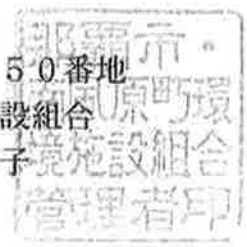 ５０番地
設組合
子
那覇市・
南風原町環
境施設組合
管理者印